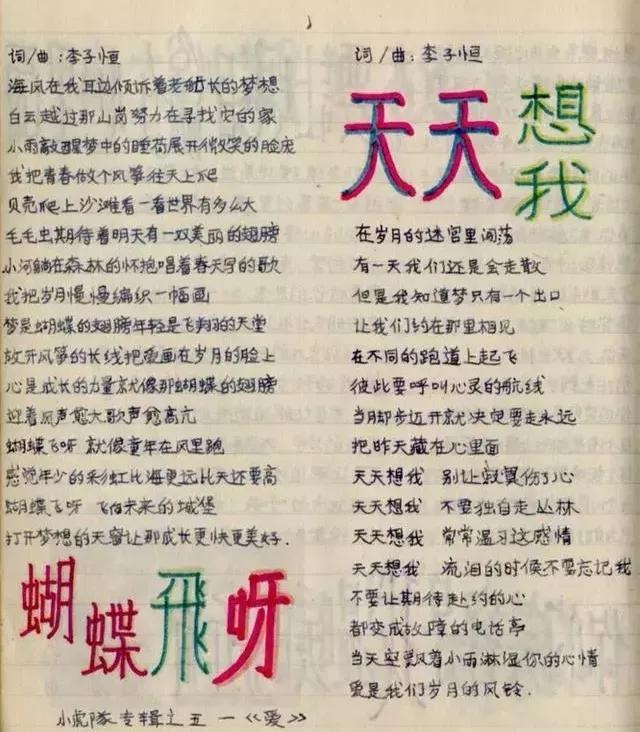 词/曲:李子恒
海风在我耳边倾诉着老船长的梦想
白云越过那山岗努力在寻找它的家
小雨敲醒梦中的睡荷展开微笑的脸庞
我把青春做个风筝往天上爬
贝壳爬上沙滩看一看世界有多么大
毛毛虫期待着明天有一双美丽的翅膀
小河躺在森林的怀抱唱着春天写的歌
我把岁月慢慢编织一幅画
梦是蝴蝶的翅膀年轻是飞翔的天堂
放开风筝的长线把爱画在岁月的脸上
心是成长的力量就像那蝴蝶的翅膀
迎着风声愈大歌声愈高亢
蝴蝶飞呀 就像童年在风里跑
感觉年少的彩虹比海更远比天还要高
蝴蝶飞呀 飞向未来的城堡
打开梦想的天窗让那成长更快更美好.
蝴蝶飛呀
小虎隊专辑之五 —《爱》
词/曲:李子恒
天天想我
在岁月的迷宫里闯荡
有一天我们还是会走散
但是我知道梦只有一个出口
让我们约在那里相见
在不同的跑道上起飞
彼此要呼叫心灵的航线
当脚步迈开就决定要走永远
把昨天藏在心里面
天天想我 别让寂寞伤了心
天天想我 不要独自走丛林
天天想我 常常温习这感情
天天想我 流泪的时候不要忘记我
不要让期待赴约的心
都变成故障的电话亭
当天空飘着小雨淋湿你的心情
爱是我们岁月的风铃.